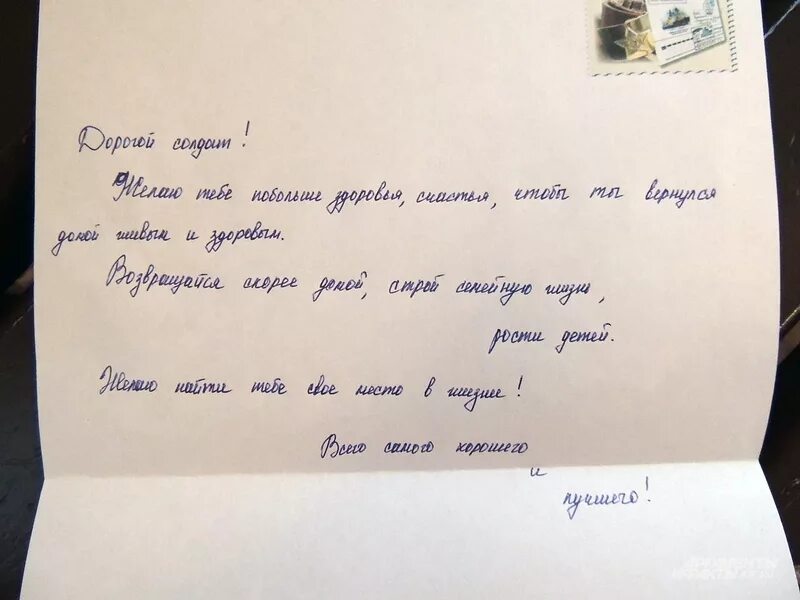 Дорогой солдат!
Желаю тебе побольше здоровья, счастья, чтобы ты вернулся
домой живым и здоровым.
Возвращайся скорее домой, строй семейную жизнь,
рости детей.
Желаю найти тебе свое место в жизни!
Всего самого хорошего
и
лучшего!
АРГУМЕНТЫ